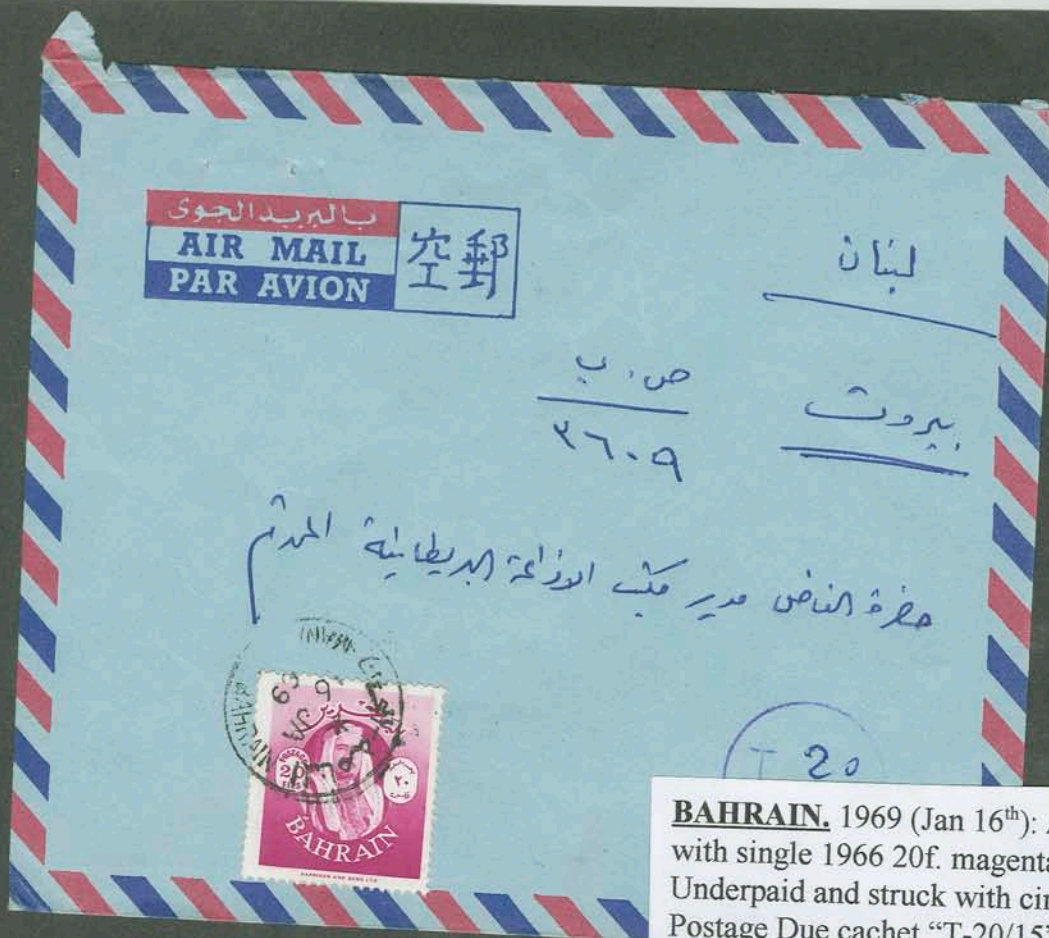 بالبريد الجوى
AIR MAIL
PAR AVION
空郵
لبنان
بيروت
ص. ب
٣٦٠٩
حضرة الفاضل مدير مكتب الاذاعة البريطانية المحترم
BAHRAIN
16 JA
69
٢٠
فلس
20
BAHRAIN
HARRISON AND SONS LTD
T 20
BAHRAIN. 1969 (Jan 16th):
with single 1966 20f. magenta
Underpaid and struck with
Postage Due cachet "T-20/15"